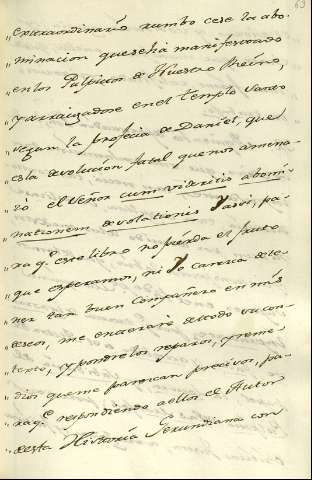 63
„ extraordinario rumbo cese la abo-
„ minacion que se há manifestado
„ en los Pulpitos de Nuestro Reino,
„ y arraigadose en el templo Santo
„ segun la profecia de Daniel, que
„ es la devolucion fatal que nos amena-
„ zó el Señor cum videritis abomi-
„ nationem devolationis Y asi, pa-
„ ra q.e este libro no pierda el fruto
„ que esperamos, ni Yo carezca de te-
„ ner tan buen compañero en mis
„ deseos, me enteraré de todo su con-
„ testo, y pondré los reparos, y reme-
„ dios que me parezcan precisos, pa-
„ ra q.e respondiendo a ellos el Autor
„ de esta Historia Gerundiana con